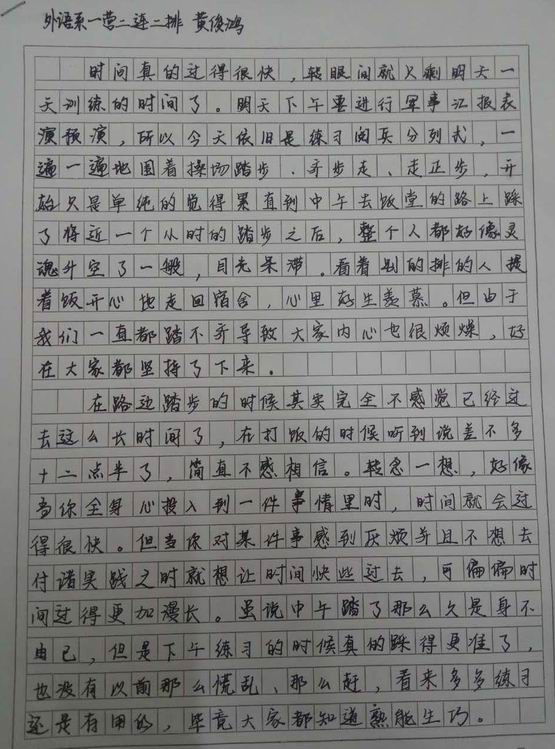 外语系一营二连二排 黄俊鸿
时间真的过得很快，转眼间就只剩明天一
天训练的时间了。明天下午要进行军事汇报表
演预演，所以今天依旧是练习阅兵分列式，一
遍一遍地围着操场踏步、齐步走、走正步，开
始只是单纯的觉得累直到中午去饭堂的路上踩
了将近一个小时的踏步之后，整个人都好像灵
魂升空了一般，目光呆滞。看着别的排的人提
着饭开心地走回宿舍，心里好生羡慕。但由于
我们一直都踏不齐导致大家内心也很烦燥，好
在大家都坚持了下来。
在路边踏步的时候其实完全不感觉已经过
去这么长时间了，在打饭的时候听到说差不多
十二点半了，简直不感相信。转念一想，好像
当你全身心投入到一件事情里时，时间就会过
得很快。但当你对某件事感到厌烦并且不想去
付诸实践之时就想让时间快些过去，可偏偏时
间过得更加漫长。虽说中午踏了那么久是身不
由己，但是下午练习的时候真的踩得更准了，
也没有以前那么慌乱、那么赶，看来多多练习
还是有用的，毕竟大家都知道熟能生巧。